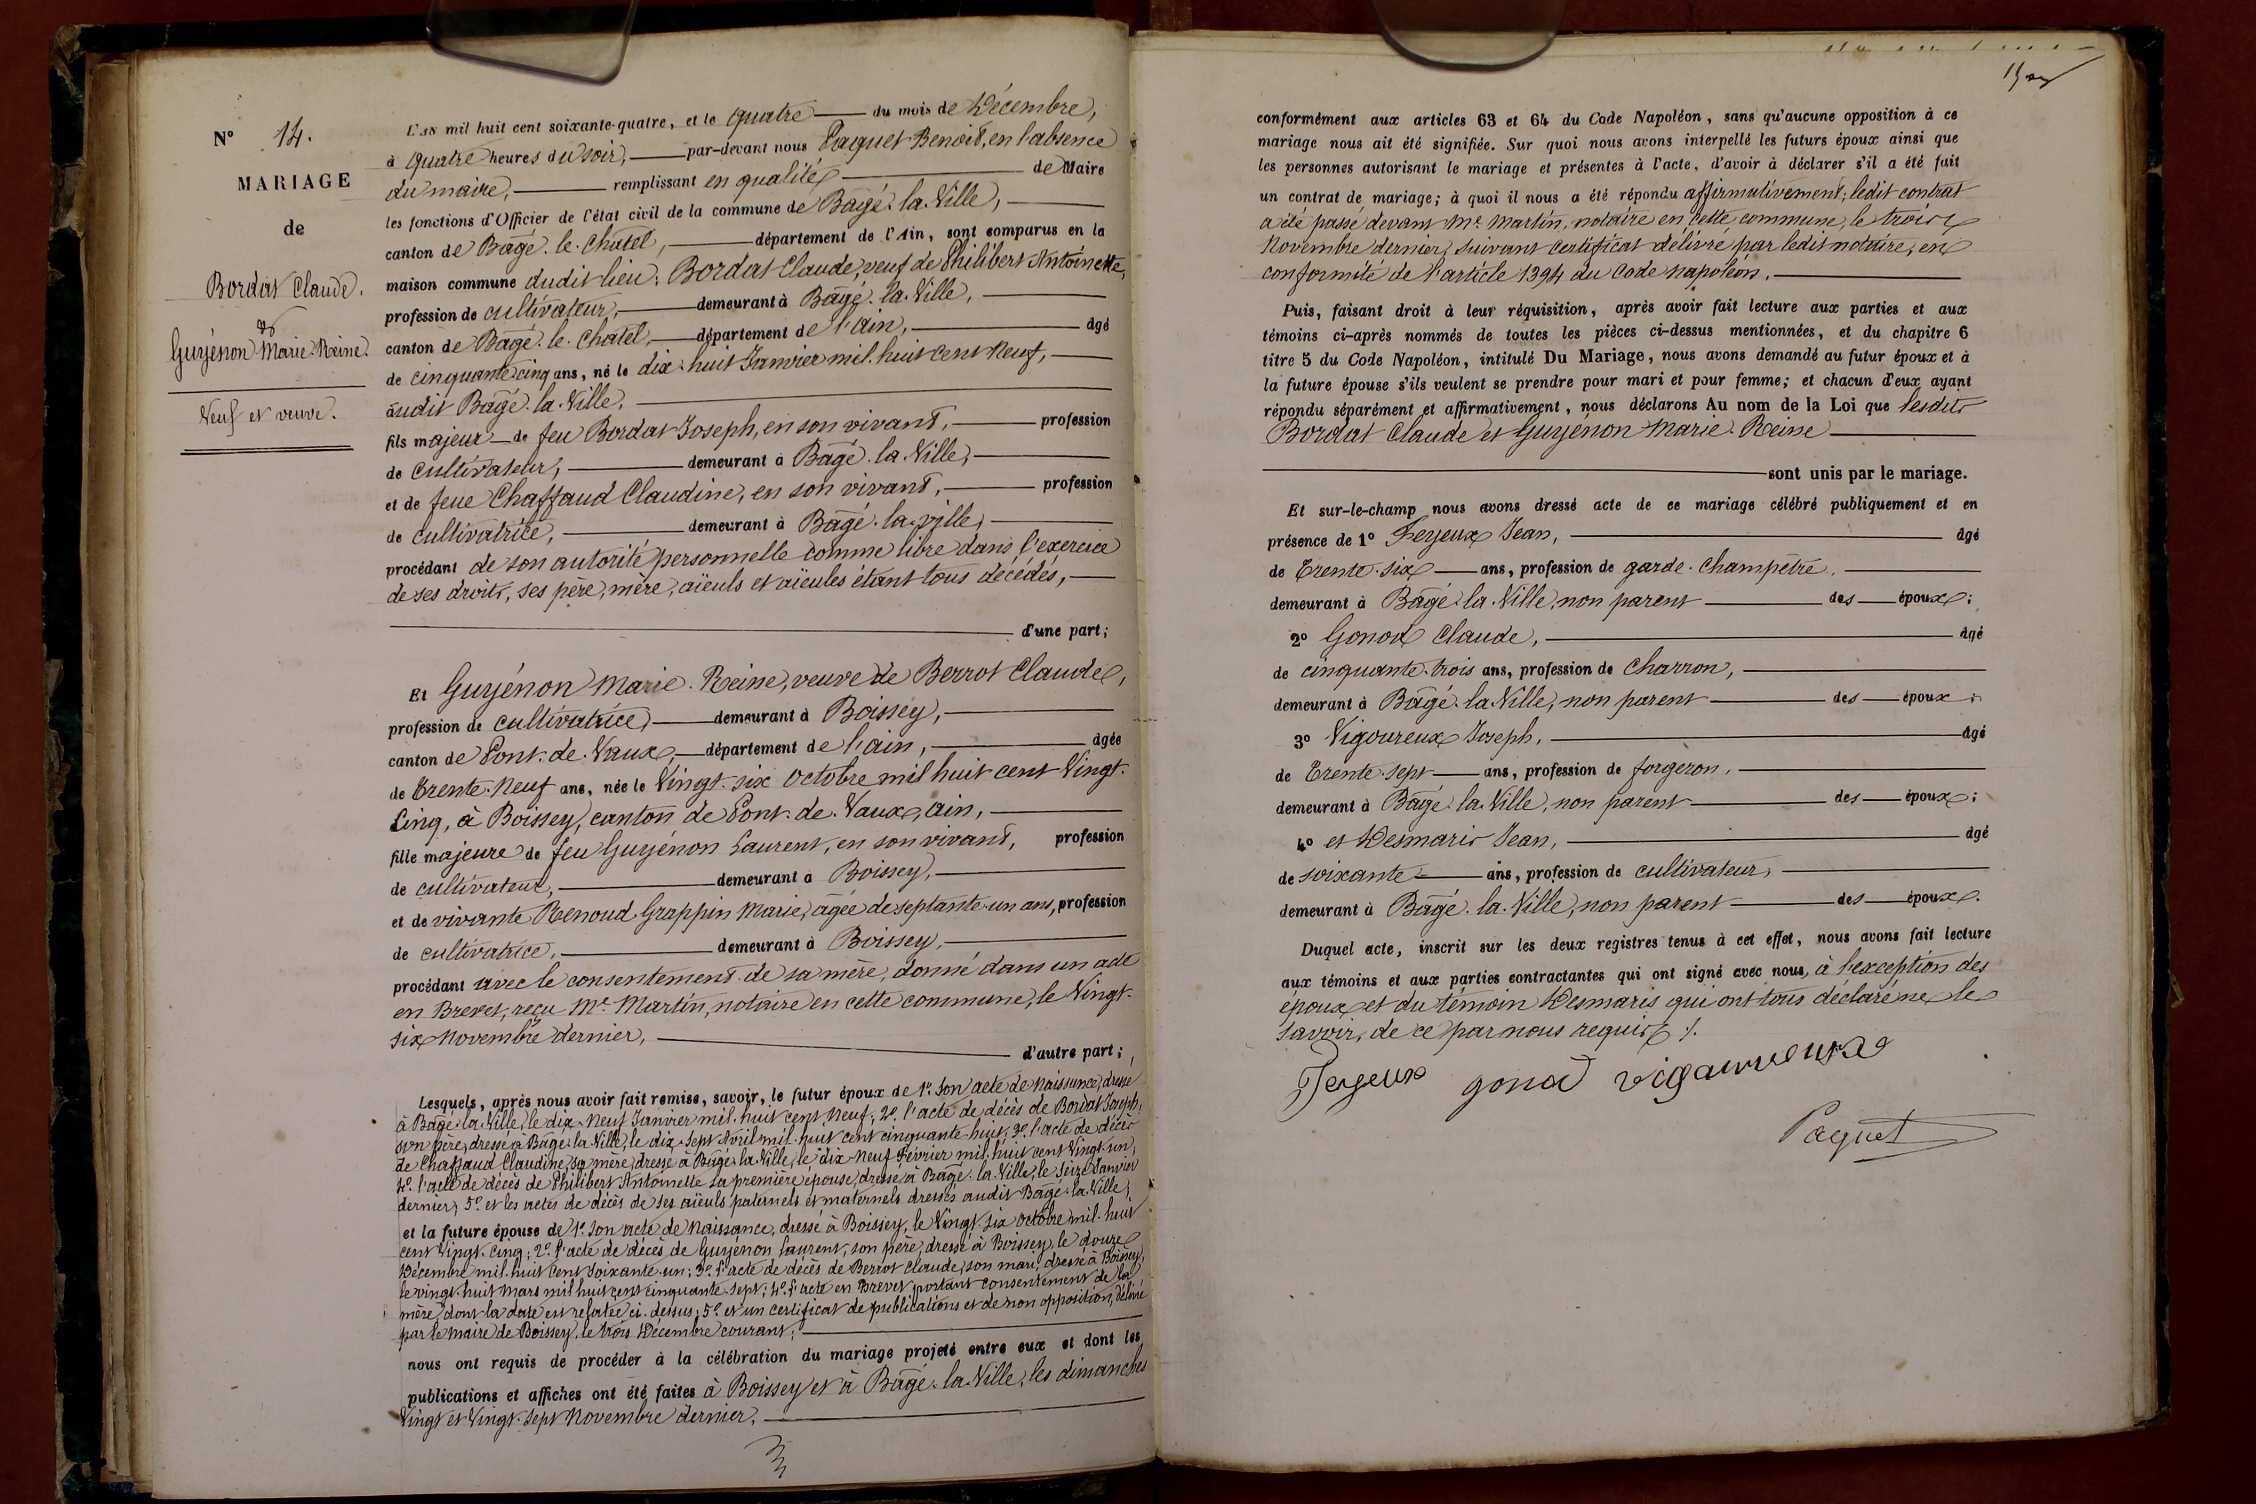 N° 14.
MARIAGE
de
Bordat Claude.
et
Guyénon Marie-Reine.
Veuf et veuve.
L'an mil huit cent soixante-quatre, et le quatre du mois de Décembre,
à quatre heures du soir, par-devant nous Paquet Benoit, en l'absence
du maire, remplissant en qualité de Maire
les fonctions d'Officier de l'état civil de la commune de Bâgé-la-Ville,
canton de Bâgé-le-Châtel, département de l'Ain, sont comparus en la
maison commune dudit lieu: Bordat Claude, veuf de Philibert Antoinette,
profession de cultivateur, demeurant à Bâgé-la-Ville,
canton de Bâgé-le-Châtel, département de l'ain, âgé
de cinquante cinq ans, né le dix-huit Janvier mil huit cent neuf,
audit Bâgé-la-Ville,
fils majeur de feu Bordat Joseph, en son vivant, profession
de cultivateur, demeurant à Bâgé-la-Ville,
et de feue Chaffaud Claudine, en son vivant, profession
de cultivatrice, demeurant à Bâgé-la-ville,
procédant de son autorité personnelle comme libre dans l'exercice
de ses droits, ses père, mère, aïeuls et aïeules étant tous décédés,
d'une part;
Et Guyénon Marie-Reine, veuve de Berrot Claude,
profession de cultivatrice, demeurant à Boissey,
canton de Pont-de-Vaux, département de l'ain, âgée
de trente-neuf ans, née le vingt-six octobre mil huit cent vingt-
cinq, à Boissey, canton de Pont-de-Vaux, ain,
fille majeure de feu Guyénon Laurent, en son vivant, profession
de cultivateur, demeurant à Boissey,
et de vivante Renoud Grappin Marie, âgée de septante-un ans, profession
de cultivatrice, demeurant à Boissey,
procédant avec le consentement de sa mère, donné dans un acte
en Brevet, reçu Me Martin, notaire en cette commune, le vingt-
six novembre dernier,
d'autre part;
Lesquels, après nous avoir fait remise, savoir, le futur époux de 1° son acte de naissance, dressé
à Bâgé-la-Ville, le dix-neuf Janvier mil-huit cent neuf; 2° l'acte de décès de Bordat Joseph,
son père, dressé à Bâgé-la-Ville, le dix-sept Avril mil-huit cent cinquante-huit; 3° l'acte de décès
de Chaffaud Claudine, sa mère, dressé à Bâgé-la-Ville, le dix-neuf Février mil-huit cent vingt-un;
4° l'acte de décès de Philibert Antoinette sa première épouse, dressé à Bâgé-la-Ville, le seize Janvier
dernier; 5° et les actes de décès de ses aïeuls paternels et maternels dressés audit Bâgé-la-Ville;
et la future épouse de 1° son acte de naissance, dressé à Boissey, le vingt-six octobre mil-huit
cent vingt-cinq; 2° l'acte de décès de Guyénon Laurent, son père, dressé à Boissey, le douze
Décembre mil-huit cent soixante-un; 3° l'acte de décès de Berrot Claude, son mari, dressé à Boissey,
le vingt-huit mars mil huit cent cinquante-sept; 4° l'acte en Brevet portant consentement de la
mère, dont la date est relatée ci-dessus; 5° et un certificat de publications et de non opposition, délivré
par le maire de Boissey, le trois Décembre courant;
nous ont requis de procéder à la célébration du mariage projeté entre eux et dont les
publications et affiches ont été faites à Boissey et à Bâgé-la-Ville, les dimanches
vingt et vingt-sept novembre dernier,
conformément aux articles 63 et 64 du Code Napoléon, sans qu'aucune opposition à ce
mariage nous ait été signifiée. Sur quoi nous avons interpellé les futurs époux ainsi que
les personnes autorisant le mariage et présentes à l'acte, d'avoir à déclarer s'il a été fait
un contrat de mariage; à quoi il nous a été répondu affirmativement; ledit contrat
a été passé devant Me Martin, notaire en cette commune, le trois
Novembre dernier, suivant certificat délivré par ledit notaire, en
conformité de l'article 1394 du Code napoléon.
Puis, faisant droit à leur réquisition, après avoir fait lecture aux parties et aux
témoins ci-après nommés de toutes les pièces ci-dessus mentionnées, et du chapitre 6
titre 5 du Code Napoléon, intitulé Du Mariage, nous avons demandé au futur époux et à
la future épouse s'ils veulent se prendre pour mari et pour femme; et chacun d'eux ayant
répondu séparément et affirmativement, nous déclarons Au nom de la Loi que lesdits
Bordat Claude et Guyénon Marie-Reine
sont unis par le mariage.
Et sur-le-champ nous avons dressé acte de ce mariage célébré publiquement et en
présence de 1° Feyeux Jean, âgé
de trente-six ans, profession de garde-champêtre,
demeurant à Bâgé-la-Ville, non parent des époux;
2° Gonod Claude, âgé
de cinquante-trois ans, profession de charron,
demeurant à Bâgé-la-Ville, non parent des époux;
3° Vigoureux Joseph, âgé
de trente-sept ans, profession de forgeron,
demeurant à Bâgé-la-Ville, non parent des époux;
4° et Desmaris Jean, âgé
de soixante ans, profession de cultivateur,
demeurant à Bâgé-la-Ville, non parent des époux.
Duquel acte, inscrit sur les deux registres tenus à cet effet, nous avons fait lecture
aux témoins et aux parties contractantes qui ont signé avec nous, à l'exception des
époux et du témoin Desmaris qui ont tous déclaré ne le
savoir, de ce par nous requis ./.
Feyeux gonod vigoureux
Paquet